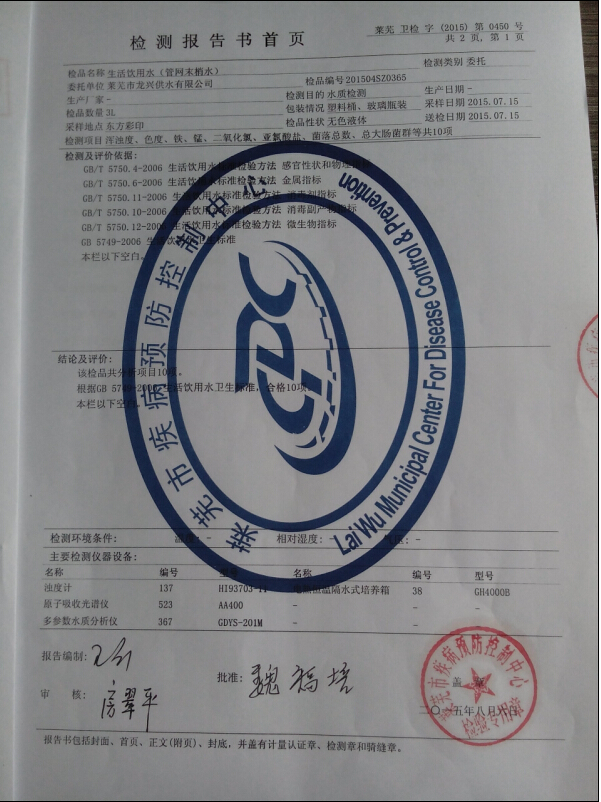 莱芜 卫检 字 (2015) 第 0450 号
检测报告书首页
共 2 页, 第 1 页
检品名称 生活饮用水（管网末梢水）
检测类别 委托
委托单位 莱芜市龙兴供水有限公司
检品编号 201504SZ0365
生产厂家 -
检测目的 水质检测
生产日期 -
检品数量 3L
包装情况 塑料桶、玻璃瓶装
采样日期 2015.07.15
采样地点 东方彩印
检品性状 无色液体
送检日期 2015.07.15
检测项目 浑浊度、色度、铁、锰、二氧化氯、亚氯酸盐、菌落总数、总大肠菌群等共10项
检测及评价依据:
GB/T 5750.4-2006 生活饮用水标准检验方法 感官性状和物理指标
GB/T 5750.6-2006 生活饮用水标准检验方法 金属指标
GB/T 5750.11-2006 生活饮用水标准检验方法 消毒剂指标
GB/T 5750.10-2006 生活饮用水标准检验方法 消毒副产物指标
GB/T 5750.12-2006 生活饮用水标准检验方法 微生物指标
GB 5749-2006 生活饮用水卫生标准
本栏以下空白。
莱芜市疾病预防控制中心
CDC
Lai Wu Municipal Center For Disease Control & Prevention
结论及评价:
该检品共分析项目10项。
根据GB 5749-2006 生活饮用水卫生标准，合格10项。
本栏以下空白。
检测环境条件:
温度: -
相对湿度:
气压: -
主要检测仪器设备:
名称 编号 型号 名称 编号 型号
浊度计 137 HI93703-11 电热恒温隔水式培养箱 38 GH4000B
原子吸收光谱仪 523 AA400 - - -
多参数水质分析仪 367 GDYS-201M - - -
报告编制:
批准: 魏福培
审 核: 房翠平
盖 章
二〇一五年八月六日
莱芜市疾病预防控制中心
检验专用章
报告书包括封面、首页、正文(附页)、封底，并盖有计量认证章、检测章和骑缝章。